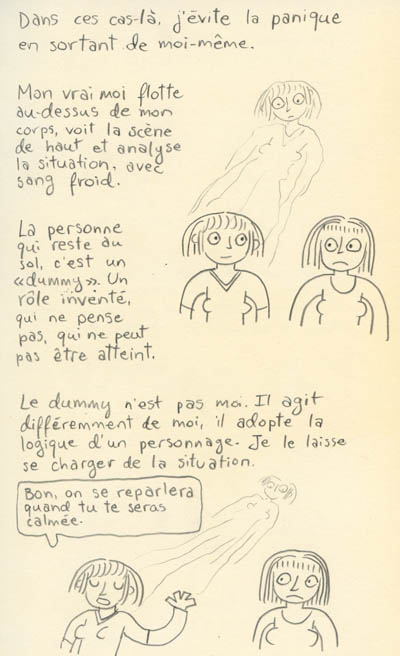 Dans ces cas-là, j'évite la panique
en sortant de moi-même.
Mon vrai moi flotte
au-dessus de mon
corps, voit la scène
de haut et analyse
la situation, avec
sang froid.
La personne
qui reste au
sol, c'est un
«dummy». Un
rôle inventé,
qui ne pense
pas, qui ne peut
pas être atteint.
Le dummy n'est pas moi. Il agit
différemment de moi, il adopte la
logique d'un personnage. Je le laisse
se charger de la situation.
Bon, on se reparlera
quand tu te seras
calmée.